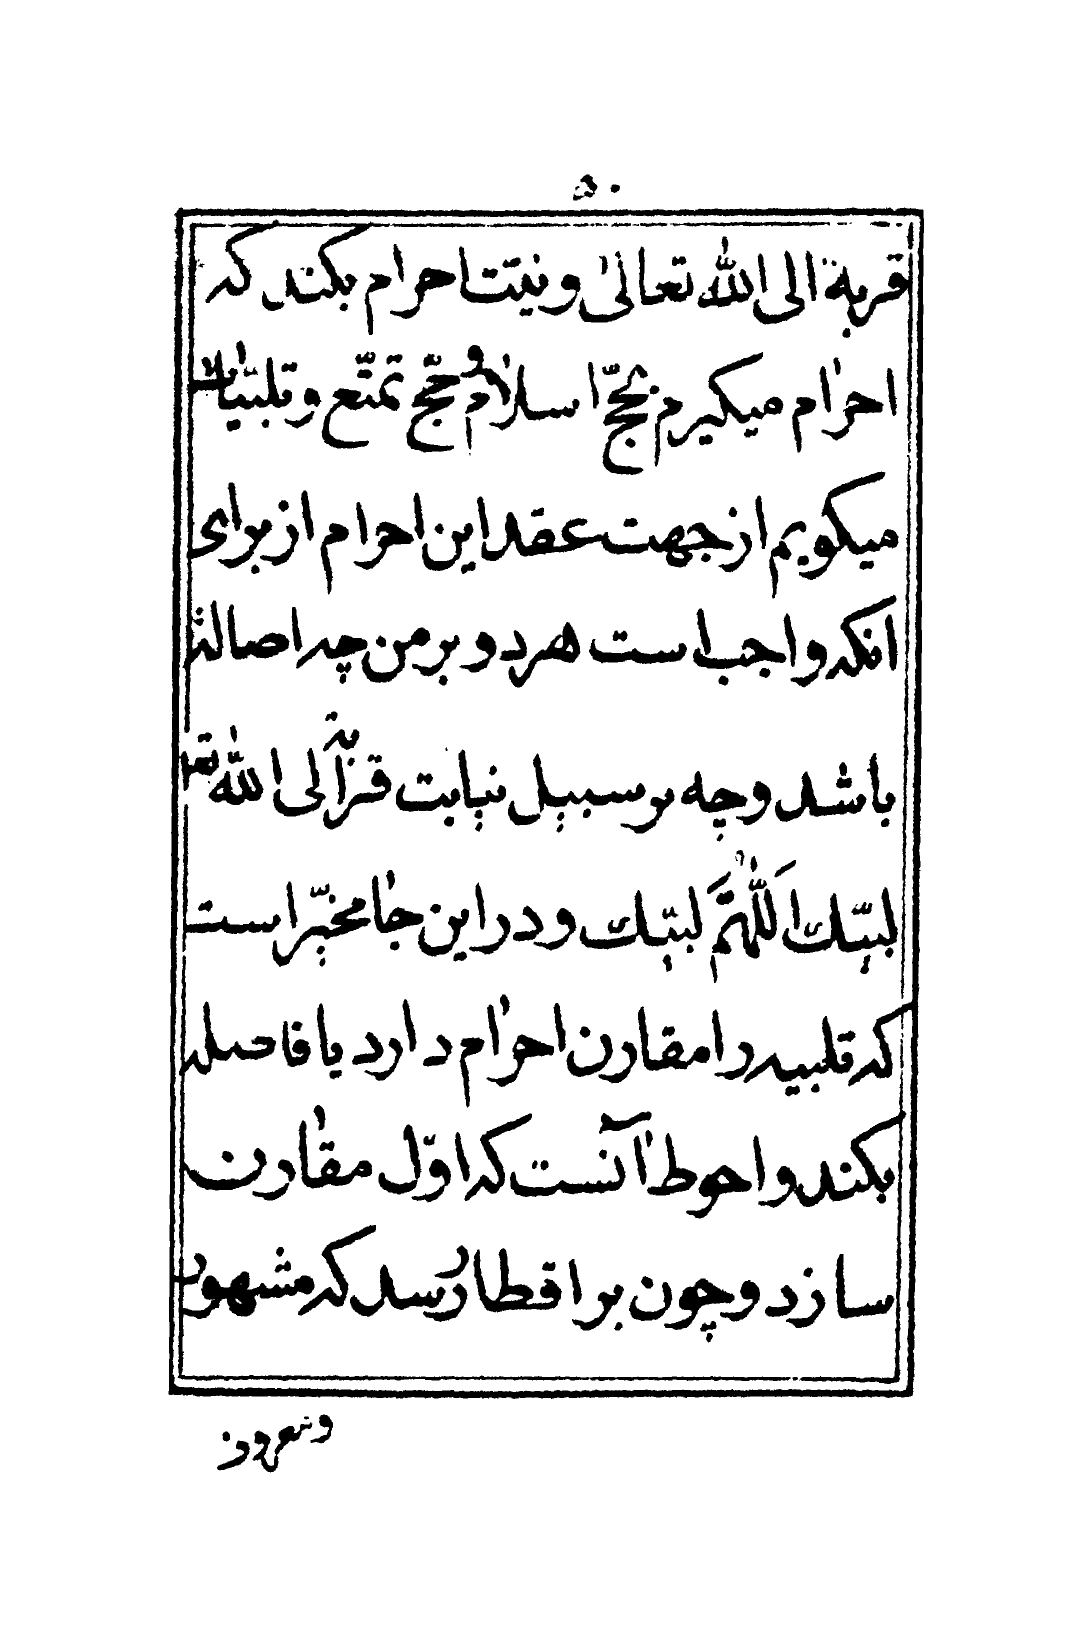 ۵۰
قربة الی الله تعالیٰ و نیّت احرام بکند که
احرام میکیرم بحجّ اسلام و حجّ تمتّع و تلبیات
میکویم از جهت عقد این احرام از برای
انکه واجب است هر دو بر من چه اصالة
باشد و چه بر سبیل نیابت قربة الی الله تعا
لبیّك اَللّهُمَّ لبیّك و در این جا مخیّر است
که تلبیه را مقارن احرام دارد یا فاصله
بکند و احوط آنست که اوّل مقارن
سازد و چون بر اقطار رسد که مشهور
و معروف